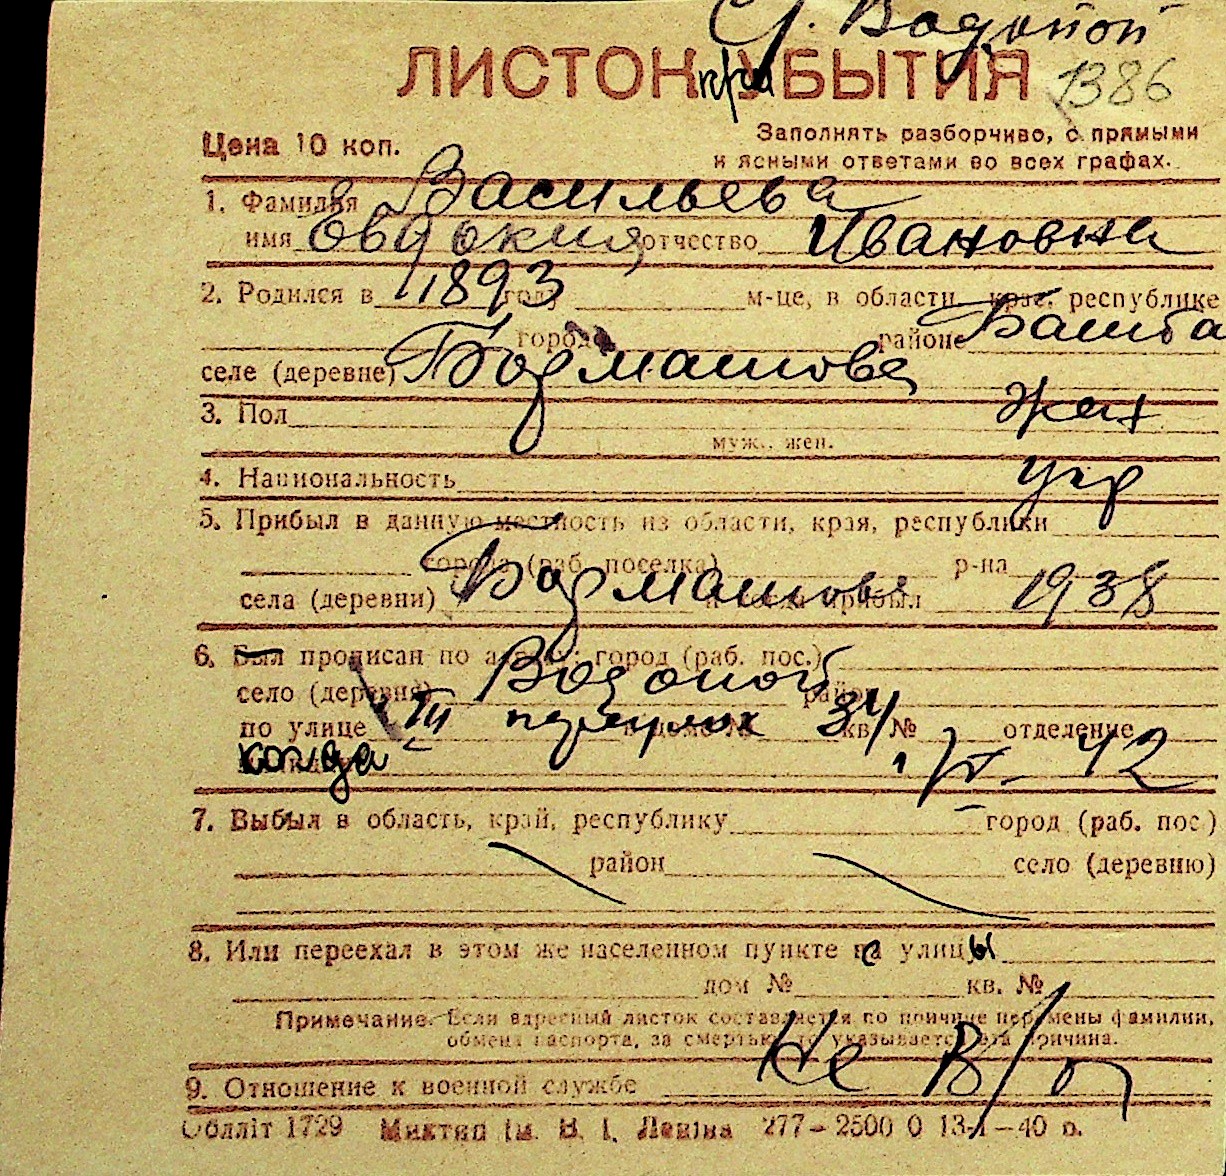 Ст. Водопой
ЛИСТОК УБЫТИЯ
при
1386
Цена 10 коп.
Заполнять разборчиво, с прямыми
и ясными ответами во всех графах.
1. Фамилия Васильева
имя Евдокия отчество Ивановна
2. Родился в 1893 году м-це, в области, крае, республике
городе районе Баштан
селе (деревне) Бармашова
3. Пол жен
муж., жен.
4. Национальность укр
5. Прибыл в данную местность из области, края, республики
города (раб. поселка) р-на
села (деревни) Бармашово и когда прибыл 1938
6. Был прописан по адресу: город (раб. пос.)
село (деревня) Водопой район
по улице III переулок дом № 34 кв. № отделение
когда 42
7. Выбыл в область, край, республику город (раб. пос.)
район село (деревню)
8. Или переехал в этом же населенном пункте с улицы
дом № кв. №
Примечание. Если адресный листок составляется по причине перемены фамилии,
обмена паспорта, за смертью, то указывается эта причина.
9. Отношение к военной службе Не в/об
Облліт 1729 Миктип ім. В. І. Леніна 277—2500 0 13-І—40 р.